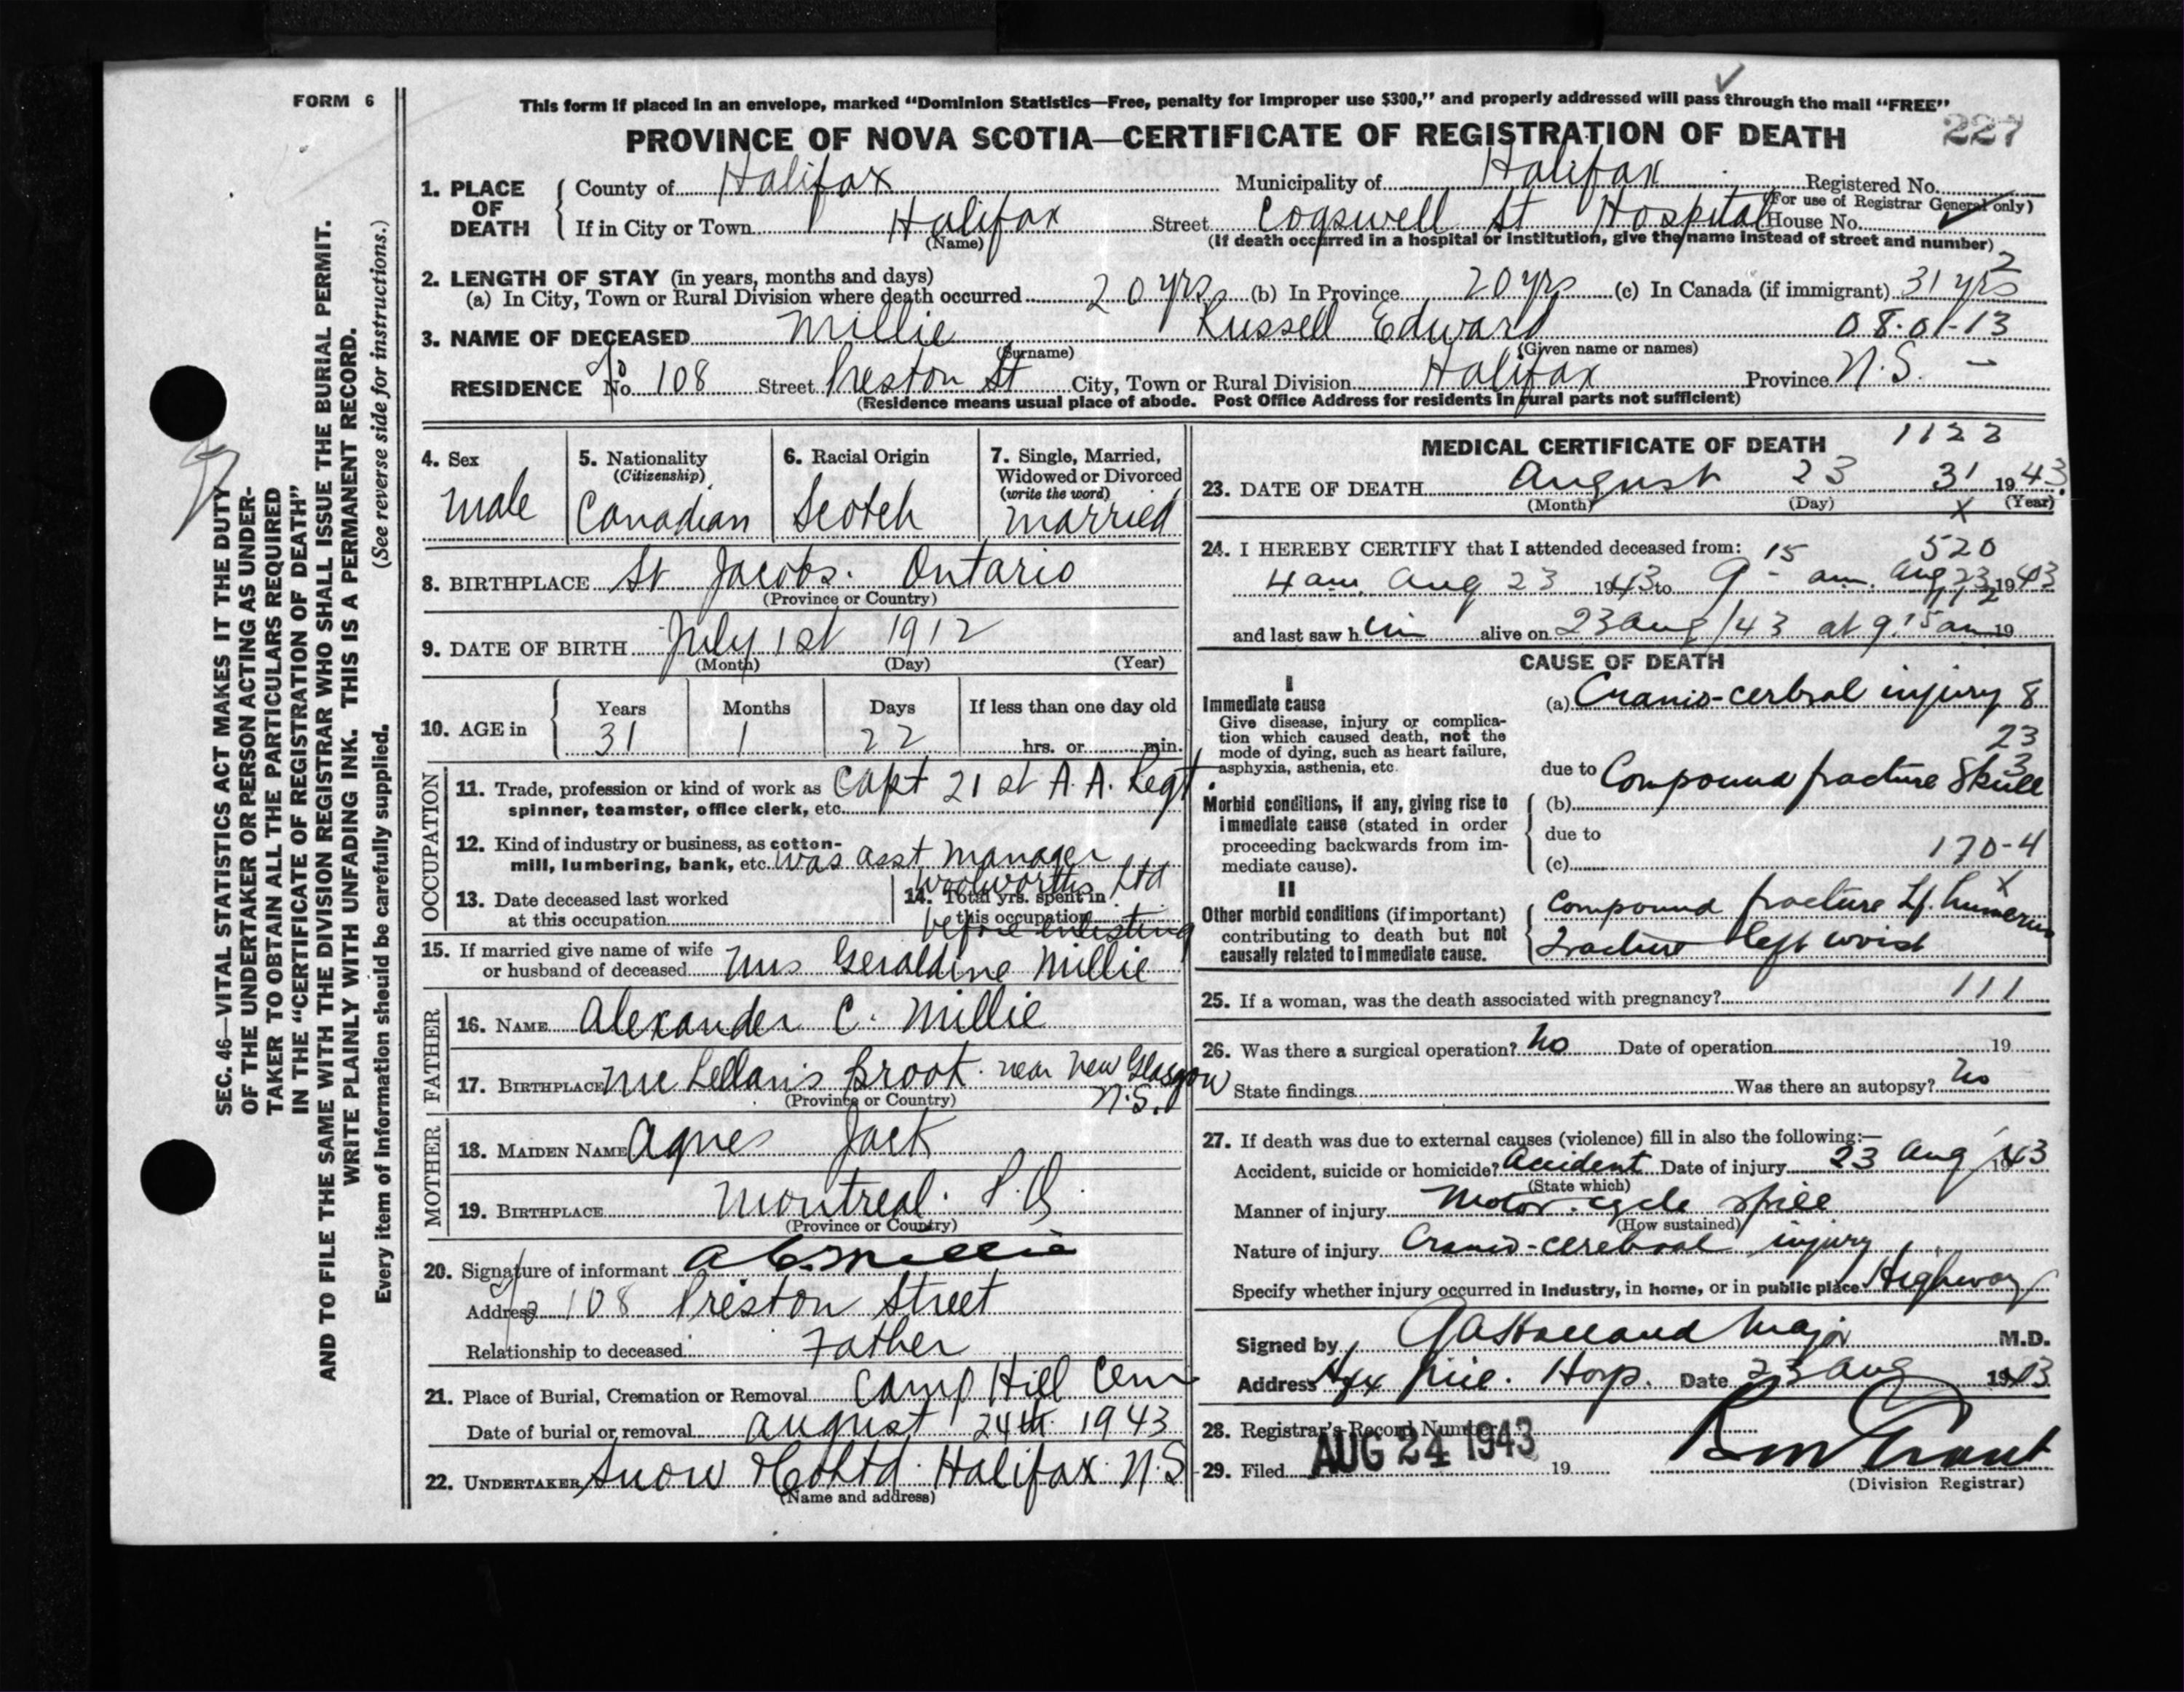 FORM 6
This form if placed in an envelope, marked "Dominion Statistics—Free, penalty for improper use $300," and properly addressed will pass through the mail "FREE"
PROVINCE OF NOVA SCOTIA—CERTIFICATE OF REGISTRATION OF DEATH 227
1. PLACE OF DEATH
County of Halifax Municipality of Halifax Registered No.
(For use of Registrar General only)
If in City or Town Halifax Street Cogswell St Hospital House No.
(Name) (If death occurred in a hospital or institution, give the name instead of street and number)
2. LENGTH OF STAY (in years, months and days) 2
(a) In City, Town or Rural Division where death occurred 20 yrs (b) In Province 20 yrs (c) In Canada (if immigrant) 31 yrs
3. NAME OF DECEASED Millie Russell Edward 08-01-13
(Surname) (Given name or names)
RESIDENCE No. 108 Street Preston St City, Town or Rural Division Halifax Province N.S. —
(Residence means usual place of abode. Post Office Address for residents in rural parts not sufficient)
4. Sex
male
5. Nationality
(Citizenship)
Canadian
6. Racial Origin
Scotch
7. Single, Married,
Widowed or Divorced
(write the word)
married
8. BIRTHPLACE St Jacobs. Ontario
(Province or Country)
9. DATE OF BIRTH July 1st 1912
(Month) (Day) (Year)
10. AGE in
Years Months Days If less than one day old
31 1 22 hrs. or min.
OCCUPATION
11. Trade, profession or kind of work as Capt 21st A.A. Regt.
spinner, teamster, office clerk, etc.
12. Kind of industry or business, as cotton-
mill, lumbering, bank, etc. was asst manager
woolworths Ltd
13. Date deceased last worked
at this occupation
14. Total yrs. spent in
this occupation
before enlisting
15. If married give name of wife
or husband of deceased Mrs Geraldine Millie
FATHER
16. NAME Alexander C. Millie
17. BIRTHPLACE McLellan's Brook. near New Glasgow
(Province or Country) N.S.
MOTHER
18. MAIDEN NAME Agnes Jack
19. BIRTHPLACE Montreal. P.Q.
(Province or Country)
20. Signature of informant A C. Millie
Address 108 Preston Street
Relationship to deceased Father
21. Place of Burial, Cremation or Removal Camp Hill Cem
Date of burial or removal August 24th 1943
22. UNDERTAKER Snow & Co Ltd. Halifax N.S
(Name and address)
MEDICAL CERTIFICATE OF DEATH 1122
23. DATE OF DEATH August 23 31 1943
(Month) (Day) x (Year)
24. I HEREBY CERTIFY that I attended deceased from: 520
4 am. Aug 23 1943 to 9 15 am. Aug 23 1943
and last saw him alive on 23 Aug/43 at 9.15 am 19
CAUSE OF DEATH
I
Immediate cause
Give disease, injury or complica-
tion which caused death, not the
mode of dying, such as heart failure,
asphyxia, asthenia, etc.
(a) Cranio-cerbral injury 8
23
3
due to Compound fracture Skull
Morbid conditions, if any, giving rise to
immediate cause (stated in order
proceeding backwards from im-
mediate cause).
(b)
due to
(c) 170-4
x
II
Other morbid conditions (if important)
contributing to death but not
causally related to immediate cause.
Compound fracture Lf. humerus
Fracture left wrist
25. If a woman, was the death associated with pregnancy? 111
26. Was there a surgical operation? No Date of operation 19
State findings Was there an autopsy? No
27. If death was due to external causes (violence) fill in also the following:—
Accident, suicide or homicide? Accident Date of injury 23 Aug 1943
(State which)
Manner of injury Motor-cycle spill
(How sustained)
Nature of injury Cranio-cerebral injury
Specify whether injury occurred in industry, in home, or in public place Highway
Signed by G A Holland Major M.D.
Address Hfx Mil. Hosp. Date 23 Aug 1943
28. Registrar's Record Number
29. Filed AUG 24 1943 19
(Division Registrar)
SEC. 46—VITAL STATISTICS ACT MAKES IT THE DUTY
OF THE UNDERTAKER OR PERSON ACTING AS UNDER-
TAKER TO OBTAIN ALL THE PARTICULARS REQUIRED
IN THE "CERTIFICATE OF REGISTRATION OF DEATH"
AND TO FILE THE SAME WITH THE DIVISION REGISTRAR WHO SHALL ISSUE THE BURIAL PERMIT.
WRITE PLAINLY WITH UNFADING INK. THIS IS A PERMANENT RECORD.
Every item of information should be carefully supplied. (See reverse side for instructions.)